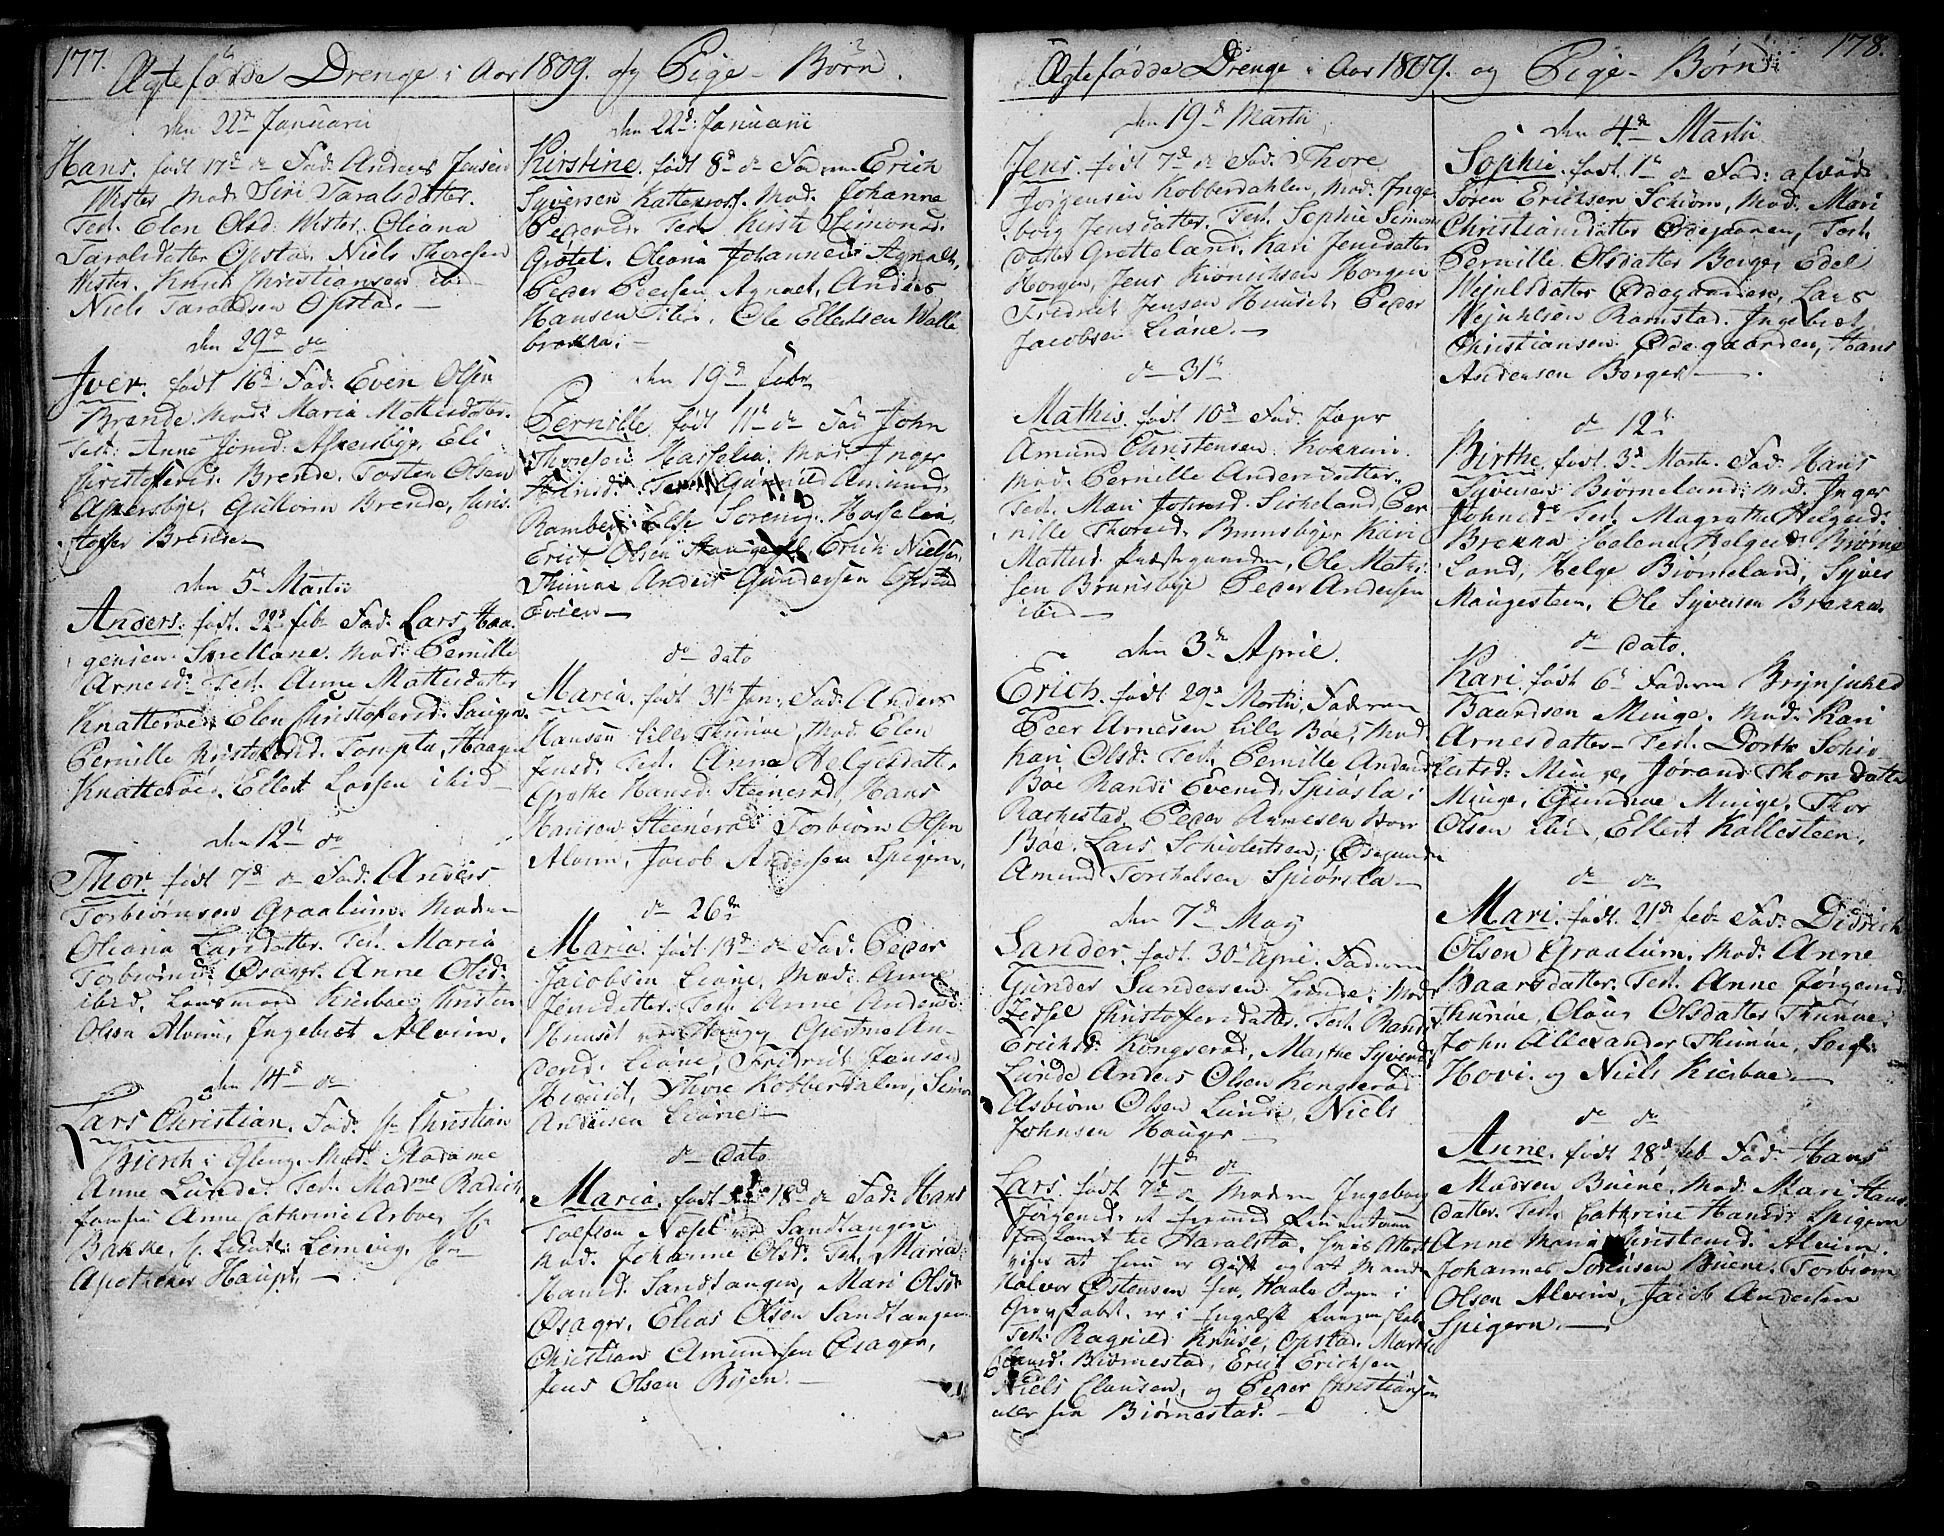 177.
Ægtefødde Drenge i Aar 1809. og Pige-Børn.
den 22de Januarii
Hans. født 17de do Fad. Anders Jensen
Wister Mod. Siri Taralsdatter.
Test. Elen Olsd. Wister. Oliana
Taralsdatter Opstad Niels Thoresen
Wister. Knud Christiansen ibid
Niels Taraldsen Opstad.
den 29de do
Iver. født 16de Fad. Even Olsen
Brende. Mod. Maria Mathisdatter.
Test: Anne Joensd: Askersbye, Eli
Christofersd. Brende. Tosten Olsen
Askersbye, Guttorm Brende, Chris-
topher Brende
den 5te Martii
Anders. født. 22de Feb. Fad. Lars Haa-
gensen Smellane. Mod. Pernille
Arnesd. Test. Anne Mathisdatter
Knatterøe. Elen Christoffersd.
Pernille Tompta, Haagen
Knatterød. Ellert Larsen ibid
den 12te do
Thor. født 7de do Fad. Anders
Torbiørnsen Graalum. Moderen
Oliana Larsdatter. Test. Maria
Torbiørnsd. Øsager. Anne Olsd.
ibid. Kierboe. Christen
Olsen Alvim, Ingebret Alvim.
den 14de do
Lars Christian. Fad. Hr Christian
Bierch i Gleng. Mod. Madame
Anne Lunde. Test. Madme Radich
Anne Cathrine Arboe, Hr
Bakke, Hr Lieut: Lemvig, Hr
Apotheker Haupt.
den 22de Januarii
Kirstine. født 8de do Faderen Erich
Syversen Katterosf. Mod. Johanne
Pedersd. Test Kirsti Simonsd.
Grøtet. Oliana Johannesd. Agnalt,
Peder Pedersen Agnalt, Anders
Hansen Lilleng. Ole Ellertsen Walle
brække.
den 19de Febr
Pernille født 11te do Fad John
Thoresen Hasselia. Mod. Inger
Test. Gunnild Amunds.
Ramberg. Else Sørensd. Hasselia,
Erich Olsen Haugestl, Erich Nielsen
Thunøe Anders Gundersen Opstad
Evien
do dato
Maria. født 31te Jan. Fad. Anders
Hansen lille Thunøe, Mod. Elen
Jensd. Test. Anna Helgesdatter
Grøthe Hansd. Steenerød, Hans
Hansen Steenerød Torbiørn Olsen
Alvim, Jacob Andersen Spigern.
do 26de
Maria. født 13de do Fad. Peder
Jacobsen Liøne, Mod. Anne
Jensdatter. Test. Anne Andersd.
Huuset Giertrue An-
dersd. Liøne, Fridrich Jensen
Huuset, Thore Kobberdalen, Simon
Andersen Liøne
do dato
Maria. født 18de do Fad. Hans
Toelfsen Næset ved Sandtangen
Mod. Johanne Olsd. Test. Maria
Hansd. Sandtangen, Mari Olsd.
Øsager, Elias Olsen Sandtangen
Christian Amundsen Øsager,
Jens Olsen Ryen.
178.
Ægtefødde Drenge i Aar 1809. og Pige-Børn
den 19de Martii
Jens. født 7de do Fad. Thore
Jørgensen Kobberdahlen, Mod. Inge-
borg Jensdatter. Test. Sophie Simons
datter Grotteland. Kari Jensdatter
Horgen, Jens Kiønichsen Horgen
Fredrich Jensen Huuset, Peder
Jacobsen Liøne.
do 31te
Mathis. født 10de Fad. Jæger
Amund Christensen
Mod. Pernille Andersdatter.
Test. Mari Johnsd. Sicheland. Per-
nille Thoresd. Brunsbye, Kari
Mathisd. Præstegaarden, Ole Mathi-
sen Brunsbye Peder Andersen
ibid
den 3de April.
Erich. født 29de Martii, Faderen
Peer Arnesen lille Bøe, Mod
Kari Olsd. Test. Pernille Andersd
Bøe Randi Evensd. Spiørsta i
Rachestad. Peder Arnesen
Bøe. Lars Schiolertsen, Øsegaarden
Amund Torchelsen Spiørsta
den 7de May
Sander. født. 30te Apri. Faderen
Gunder Sandersen Lunde, Mod
Zidsel Christoffersdatter. Test. Randi
Erichsd. Kongserød, Marthe Syversd.
Lunde Anders Olsen Kongserød
Asbiørn Olsen Lunde, Niels
Johnsen Hauger
14de do
Lars. født 7de do Moderen Ingeborg
Jørgensd: et
forlovet til Haralsta, hvis Attest
viser at hun er Gift og at Manden
Halvor Østensen fra Hoole Sogn i
er i Engelsk Fangenskab
Test: Ragnild Kruse, Opstad. Marthe
Clausd: Biørnestad, Erich Erichsen
Niels Clausen, og Peder Christiansen
alle fra Biørnestad.
den 4de Martii
Sophie. født. 1te do Fad: afdøde
Søren Erichsen Schiørn, Mod. Mari
Christiansdatter Ødegaarden, Test.
Pernille Olsdatter Berger, Edel
Wejulsdatter Ødegaarden, Lars
Wejulsen Ramstad. Ingebret
Christiansen Ødegaarden, Hans
Andersen Berger
do 12te
Birthe. født. 3de Marti. Fad. Hans
Syversen Biørneland, Mod. Inger
Johnsd. Test. Magrethe Helgesd:
Brekka Helene Helgesd: Biørne-
land, Helge Biørneland, Syver
Maugesteen, Ole Syversen Brekka.
do dato.
Kari født 6te Faderen Brynjuhld
Baardsen Minge. Mod. Kari
Arnesdatter Test. Dorthe Schio-
lertsd: Minge, Jøran Thoredatter
Minge, Gundroe Minge, Thor
Olsen ibid, Ellert Kallesteen.
do do
Mari. født. 21de Feb. Fad. Didrich
Olsen Graalum. Mod. Anne
Baarsdatter. Test. Anne Jørgensd.
Thunøe, Olaug Olsdatter Thunøe.
John Allexander Thunøe,
Hovi. og Niels Kierboe
do do
Anne. født 28de Feb. Fad. Hans
Madsen Buene. Mod. Mari Hans-
datter. Test. Cathrine Hansd: Spigern
Anne Maria Christensd. Alvim.
Johannes Sørensen Buene. Torbiørn
Olsen Alvim, Jacob Andersen
Spigern.